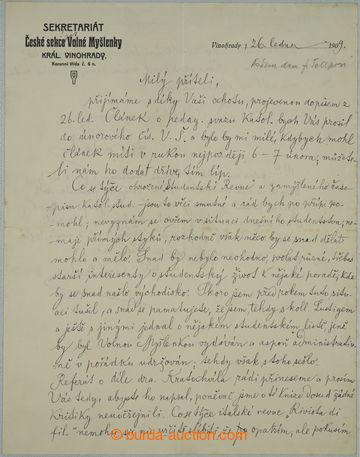 SEKRETARIÁT
České sekce Volné Myšlenky
KRÁL. VINOHRADY.
Korunní třída č. 6 n.
Vinohrady, 26. ledna 1909.
Milý příteli,
přijímáme s díky Vaši ochotu, projevenou dopisem z
26. led. Článek o pedag. svazu katol. bych Vás prosil
do únorového čís. V. Š. a bylo by mi milé, kdybych mohl
článek míti v rukou nejpozději 6 – 7 února; můžete-
li nám ho dodat dříve, tím líp.
Co se týče ohrožení „Studentské Revue" a zamýšleného časo-
pisu katol. stud. jsou to věci smutné a rád bych po příp. po-
mohl, nevyznám se ovšem v situaci dnešního studentstva, ne-
maje přímých styků, rozhodně však něco by se snad dělat
mohlo a mělo. Snad by nebylo neohodno, svolat různé, třebas
starší interesenty o studentský život k nějaké poradě, kde
by se snad našlo východisko. Skoro jsem před rokem tuto situ-
aci tušil, a snad se pamatujete, že jsem tehdy s koll. Lustigem
a ještě s jinými jednal o nějakém studentském listě, jenž
by byl Volnou Myšlenkou vydáván a aspoň administrativ-
ně v pořádku udržován; tehdy však s toho sešlo.
Referát o díle dra. Kratochvila rádi přineseme a prosím
Vás tedy, abyste ho napsal, poněvač jsme o té knize dosud žádné
kritiky neuveřejnili. Co se týče italské revue „Rivista di
fil." nemohu se mi určitě slíbiti že ji opatřím, ale pokusím
burda-auction.com